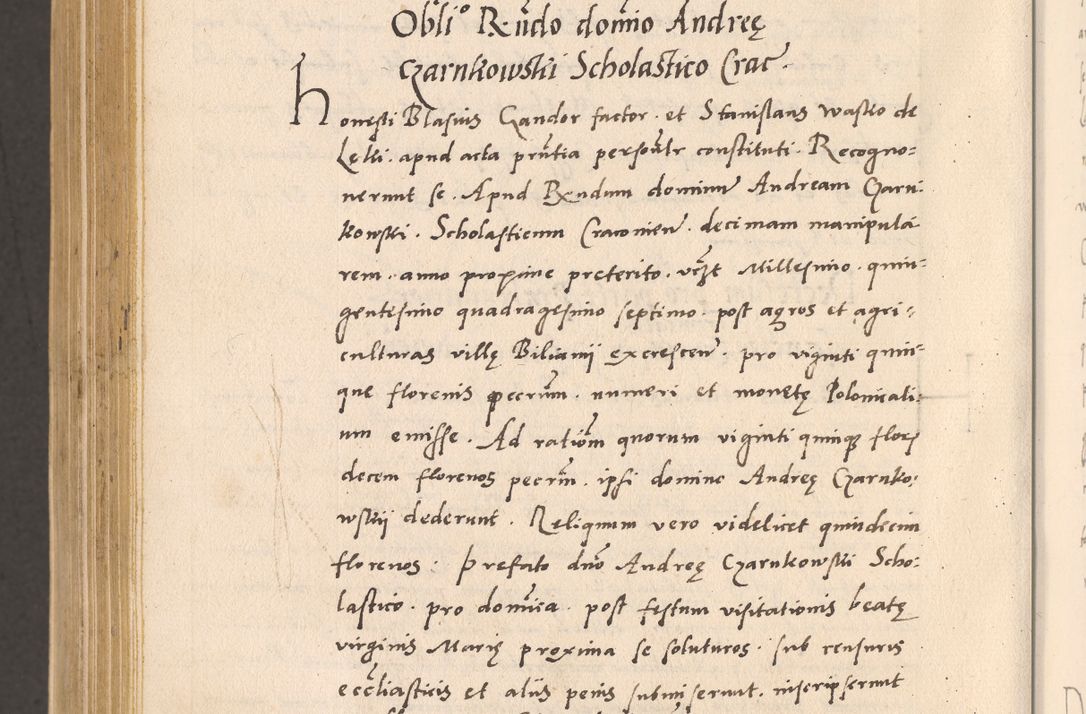 Obli° R̃udo domĩo Andreę
Czarnkowski Scholastico Crac̃.
Honesti Blasius Gandor factor · et Stanislaus Wasko de
Lelki · apud acta prñtia persoñlr constituti · Recogno=
nerunt se · Apud R̃ndum dominũ Andream Czarn=
kowski · Scholasticum Cracovieñ · decimam manipula
rem · anno proxime preterito · vcz̃t Millesimo · quin=
gentesimo quadragesimo septimo · post agros et agri=
culturas villę Bilianii excrescen̄ · pro viginti quin=
que florenis pecc̃ũm · numeri et monetę Polonicali=
um emisse · Ad rationem quorum viginti quinqȝ flor̃
decem florenos pec̃rm̃ · ipsi domino Andreę Czarnko=
wskii dederunt · Reliquum vero videlicet quindecim
florenos · prefato dño Andreę Czarnkowski Scho=
lastico · pro domĩca · post festum visitationis beatę
virginis Marię proxima se soluturos · sub censuris
eccĺiasticis et aliis penis submiserunt · inscripserunt